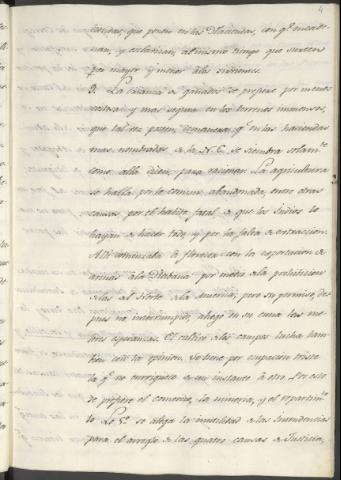 4
tiendas, que ponen en las Haciendas, con q.e encade-
nan, y esclavizan, al mismo tiempo que surten
por mayor y menor á los
3. La crianza de ganados se prefiere por menos
costosa y mas segura en los terrenos inmensos,
que tal vez poseen, demanera q.e en las haciendas
mas nombradas de la N. E. se siembra solam.te
como alla dicen, para racionar. La agricultura
se halla por lo comun abandonada, entre otras
causas, por el habito fatal de que los Indios lo
hayan de hacer todo, y por la falta de extraccion.
Alli comenzaba á florecer con la exportacion de
arinas á la Habana por medio de la prohibicion
de las del Norte de la America, pero su permiso, des-
pues no interrumpido, ahogó en su cuna las me-
jores esperanzas. El cultivo de los campos lucha tam-
bien con la opinion. Se tiene por ocupacion triste
la q.e no enriquece de un instante á otro. Por eso
se prefiere el comercio, la mineria, y el repartim.to
se alega la inutilidad de las Intendencias
para el arreglo de las quatro causas de Justicia,